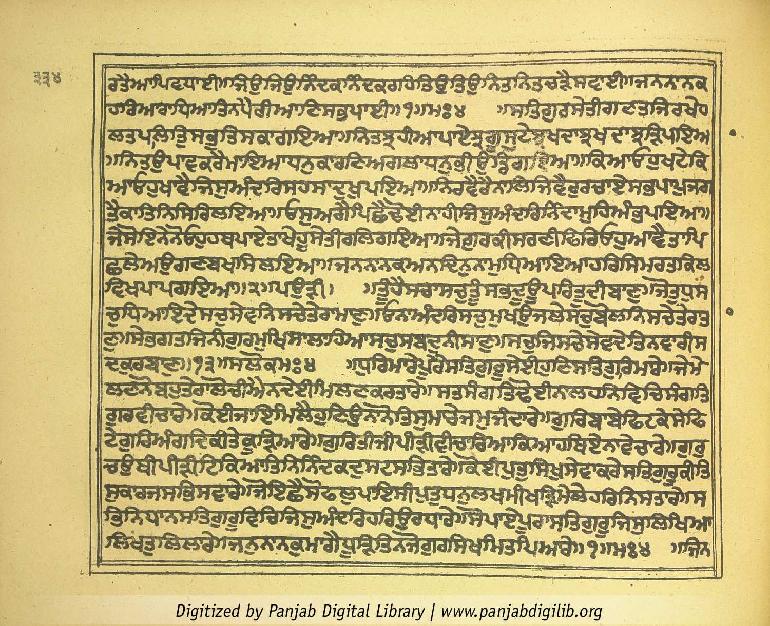 ੩੩੪
ਰਤੈਆਪਿਵਧਾਈ॥ਜਿਉਜਿਉਨਿੰਦਕਨਿੰਦਕਰਹਿਤਿਉਤਿਉਨਿਤਨਿਤਚੜੈਸਵਾਈ॥ਜਨਨਾਨਕ
ਹਰਿਆਰਾਧਿਆਤਿਨਿਪੈਰੀਆਣਿਸਭਪਾਈ॥੧॥ਮਃ੪ ॥ਸਤਿਗੁਰਸੇਤੀਗਣਤਜਿਰਖੈਹ
ਲਤੁਪਲਤੁਸਭੁਤਿਸਕਾਗਇਆ॥ਨਿਤਝਹੀਆਪਾਏਝਗੂਸੁਟੇਝਖਦਾਝਖਦਾਝੜਿਪਇਆ
॥ਨਿਤਉਪਾਵਕਰੈਮਾਇਆਧਨਕਾਰਣਿਅਗਲਾਧਨੁਭੀਉਡਿਗਇਆ॥ਕਿਆਓਹੁਖਟੇਕਿ
ਆਓਹੁਖਾਵੈਜਿਸੁਅੰਦਰਿਸਹਸਾਦੁਖੁਪਇਆ॥ਨਿਰਵੈਰੈਨਾਲਿਜਿਵੈਰੁਰਚਾਏਸਭੁਪਾਪੁਜਗ
ਤੈਕਾਤਿਨਿਸਿਰਿਲਇਆ॥ਓਸੁਅਗੈਪਿਛੈਢੋਈਨਾਹੀਜਿਸੁਅੰਦਰਿਨਿੰਦਾਮੁਹਿਅੰਬੁਪਇਆ॥
ਜੇਸੁਇਨੇਨੋਓਹੁਹਥੁਪਾਏਤਾਖੇਹੂਸੇਤੀਰਲਿਗਇਆ॥ਜੇਗੁਰਕੀਸਰਣੀਫਿਰਿਓਹੁਆਵੈਤਾਪਿ
ਛਲੇਅਉਗਣਬਖਸਿਲਇਆ॥ਜਨਨਾਨਕਅਨਦਿਨੁਨਾਮੁਧਿਆਇਆਹਰਿਸਿਮਰਤਕਿਲ
ਵਿਖਪਾਪਗਇਆ॥੨॥ਪਉੜੀ॥ ਤੂਹੈਸਚਾਸਚੁਤੂਸਭਦੂਉਪਰਿਤੂਦੀਬਾਣੁ॥ਜੋਤੁਧੁਸ
ਚੁਧਿਆਇਦੇਸਚੁਸੇਵਨਿਸਚੇਤੇਰਾਮਾਣੁ॥ਓਨਾਅੰਦਰਿਸਚੁਮੁਖਉਜਲੇਸਚੁਬੋਲਨਿਸਚੇਤੇਰਾਤਾ
ਣੁ॥ਸੇਭਗਤਜਿਨੀਗੁਰਮੁਖਿਸਾਲਾਹਿਆਸਚੁਸਬਦੁਨੀਸਾਣੁ॥ਸਚੁਜਿਸਚੇਸੇਵਦੇਤਿਨਵਾਰੀਸ
ਦਕੁਰਬਾਣੁ॥੧੩॥ਸਲੋਕਮਃ੪ ॥ਧੁਰਿਮਾਰੇਪੂਰੈਸਤਿਗੁਰੂਸੇਈਹੁਣਿਸਤਿਗੁਰਿਮਾਰੇ॥ਜੇਮੇ
ਲਣਨੋਬਹੁਤੇਰਾਲੋਚੀਐਨਦੇਈਮਿਲਣਕਰਤਾਰੇ॥ਸਤਸੰਗਤਿਢੋਈਨਾਲਹਨਿਵਿਚਿਸੰਗਤਿ
ਗੁਰਵੀਚਾਰੇ॥ਕੋਈਜਾਇਮਿਲੈਹੁਣਿਓਨਾਨੋਤਿਸੁਮਾਰੇਜਮੁਜੰਦਾਰੇ॥ਗੁਰਿਬਾਬੈਫਿਟਕੇਸੇਫਿ
ਟੇਗੁਰਿਅੰਗਦਿਕੀਤੇਕੂੜਿਆਰੇ॥ਗੁਰਿਤੀਜੀਪੀੜੀਵੀਚਾਰਿਆਕਿਆਹਥਿਏਨਾਵੇਚਾਰੇ॥ਗੁਰੁ
ਚਉਥੀਪੀੜੀਟਿਕਿਆਤਿਨਿਨਿੰਦਕਦੁਸਟਸਭਿਤਾਰੇ॥ਕੋਈਪੁਤੁਸਿਖੁਸੇਵਾਕਰੇਸਤਿਗੁਰੂਕੀਤਿ
ਸੁਕਾਰਜਸਭਿਸਵਾਰੇ॥ਜੋਇਛੈਸੋਫਲੁਪਾਇਸੀਪੁਤੁਧਨੁਲਖਮੀਖੜਿਮੇਲੇਹਰਿਨਿਸਤਾਰੇ॥ਸ
ਭਿਨਿਧਾਨਸਤਿਗੁਰੂਵਿਚਿਜਿਸੁਅੰਦਰਿਹਰਿਉਰਧਾਰੇ॥ਸੋਪਾਏਪੂਰਾਸਤਿਗੁਰੂਜਿਸੁਲਿਖਿਆ
ਲਿਖਤੁਲਿਲਾਰੇ॥ਜਨੁਨਾਨਕੁਮਾਗੈਧੂੜਿਤਿਨਜੋਗੁਰਸਿਖਮਿਤਪਿਆਰੇ॥੧॥ਮਃ੪ ॥ਜਿਨ
Digitized by Panjab Digital Library | www.panjabdigilib.org